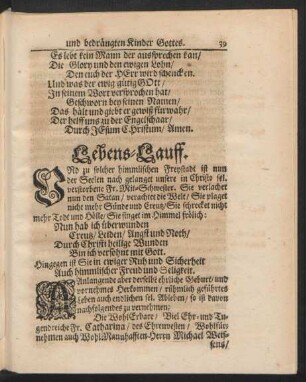 und bedrängten Kinder Gottes. 39
Es lebt kein Mann der aussprechen kan/
Die Glory und den ewigen Lohn/
Den euch der HErr wird schencken.
Und was der ewig gütig GOtt/
In seinem Wort versprochen hat/
Geschworn bey seinen Namen/
Das hält und giebt er gewiß fürwahr/
Der helff uns zu der Engelschaar/
Durch JEsum Christum/ Amen.
Lebens-Lauff.
UNd zu solcher himmlischen Freystadt ist nun
der Seelen nach gelangt unsere in Christo sel.
verstorbene Fr. Mit-Schwester. Sie verlachet
nun den Satan/ verachtet die Welt/ Sie plaget
nicht mehr Sünde und Creutz/ Sie schrecket nicht
mehr Tod und Hölle/ Sie singet im Himmel frölich:
Nun hab ich überwunden
Creutz/ Leiden/ Angst und Noth/
Durch Christi heilge Wunden
Bin ich versöhnt mit Gott.
Hingegen ist Sie in ewiger Ruh und Sicherheit
Auch himmlischer Freud und Seligkeit.
Anlangende aber derselben ehrliche Geburt/ und
vornehmes Herkommen/ rühmlich geführtes
Leben auch endlichen sel. Ableben/ so ist davon
nachfolgendes zu vernehmen:
Die WohlErbare/ Viel Ehr- und Tu-
gendreiche Fr. Catharina/ des Ehrenvesten/ Wohlfür-
nehmen auch WohlMannhafften Herrn Michael Weiß-